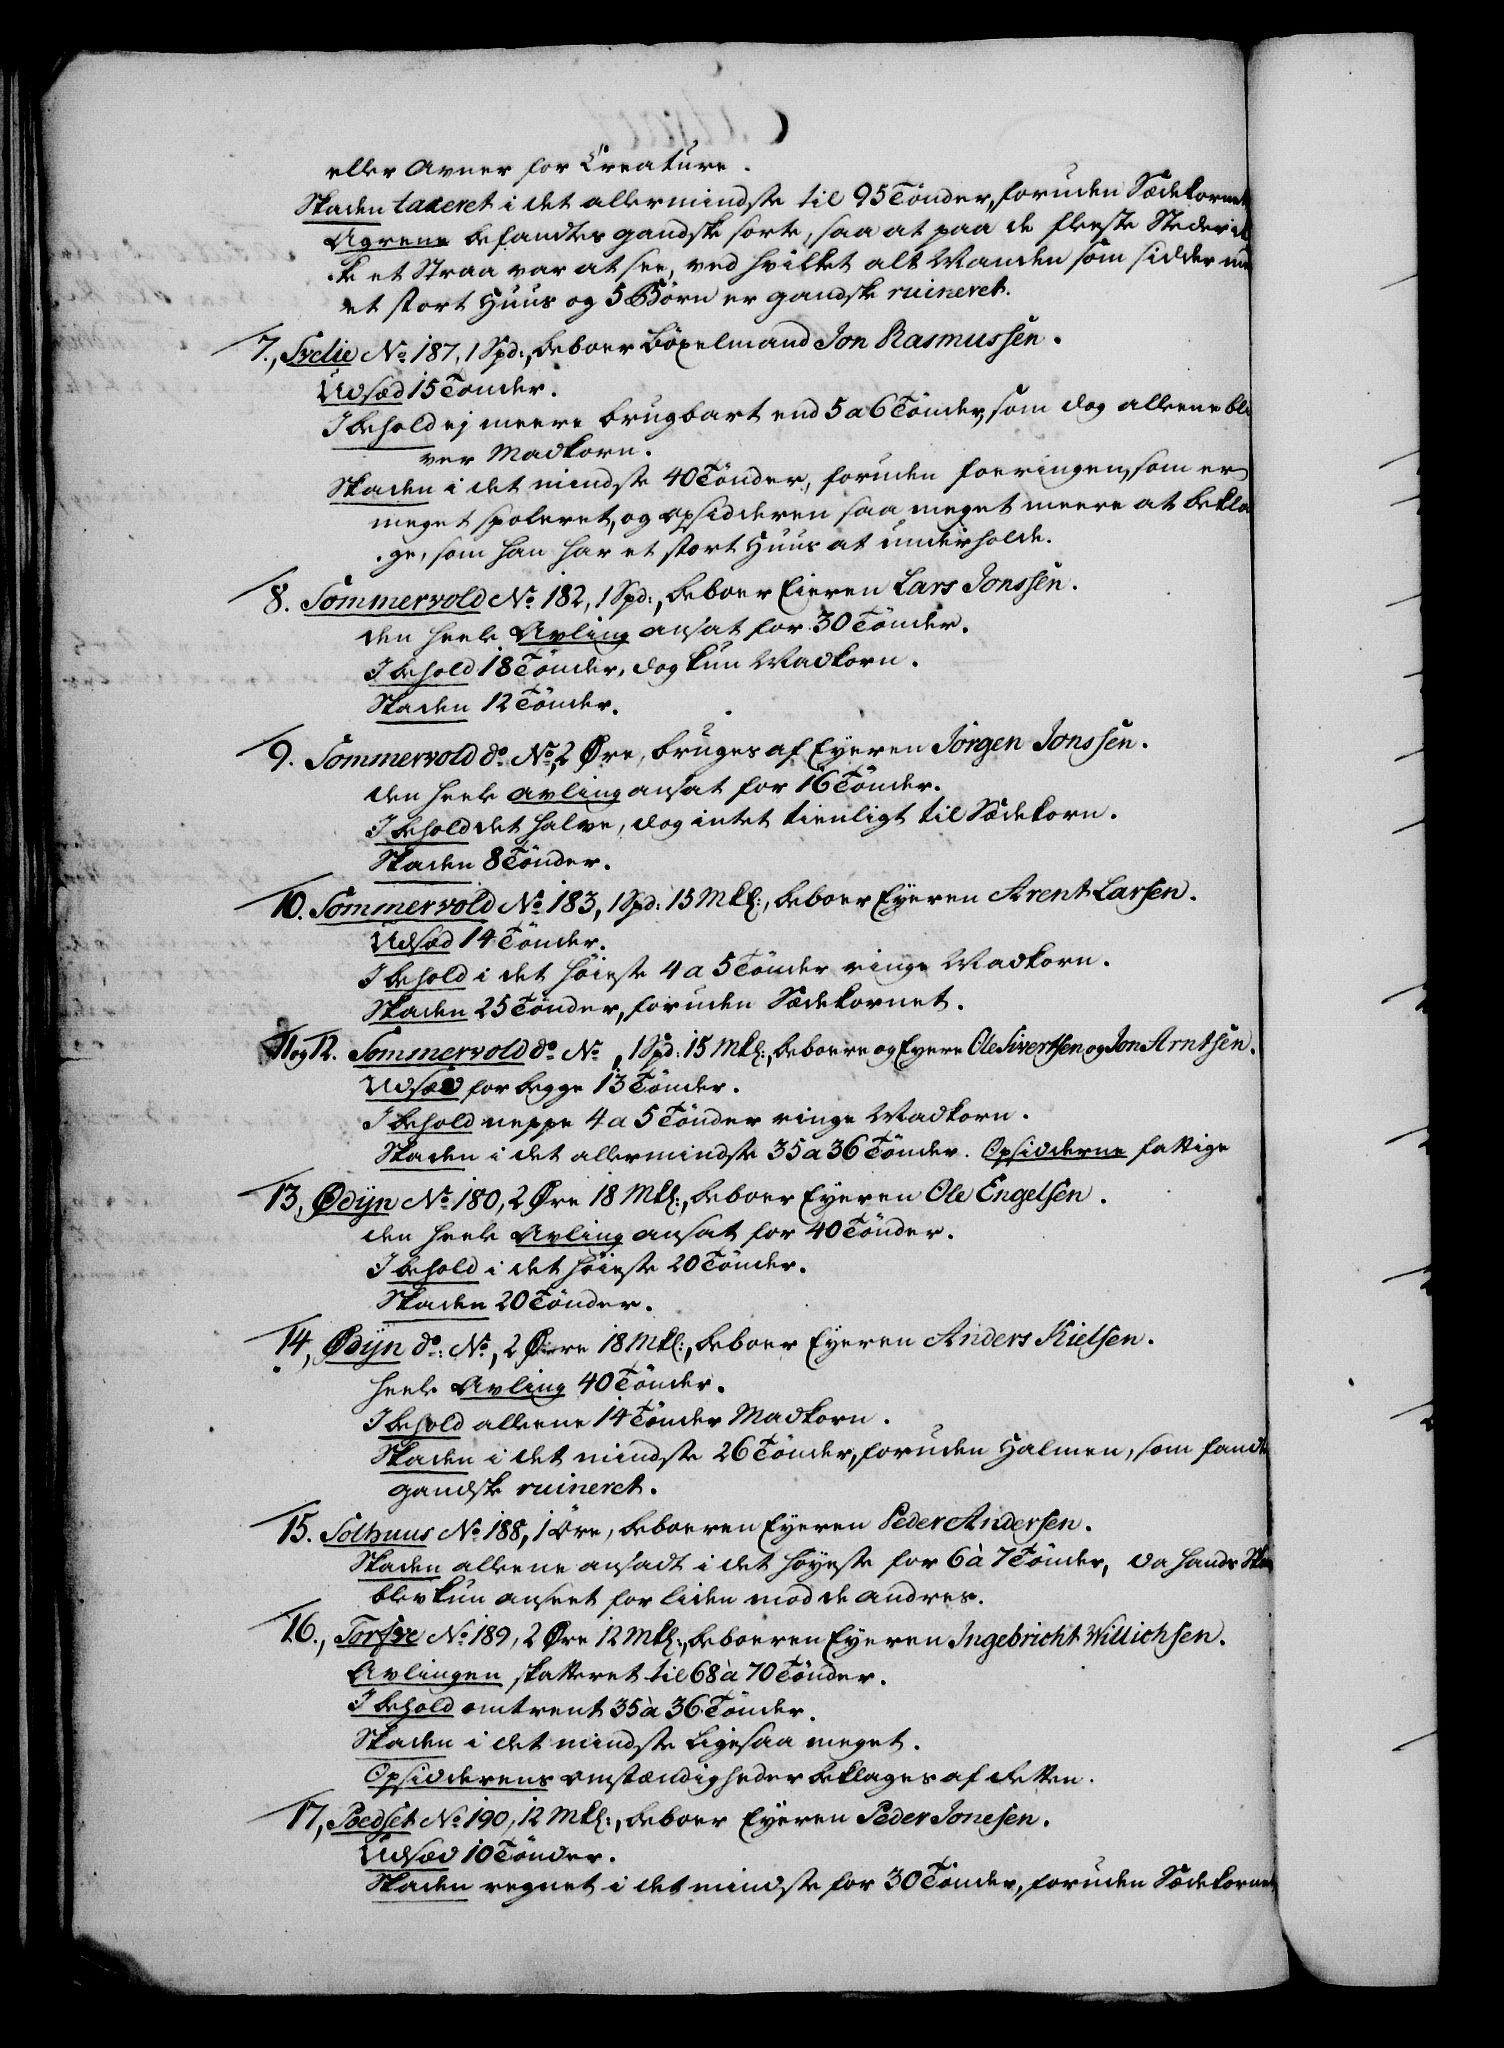 eller Avner for Creature.
Skaden taxeret i det allermindste til 95 Tönder, foruden Sædekornet
Agrene befandtes gandske sorte, saa at paa de fleeste Steder ik
ke et Straa var at see, ved hvilket alt Manden som sidder med
et stort Huus og 5 Börn er gandske ruineret.
7., Svelie No 187, 1 Spd:, beboer böxelmand Jon Rasmussen.
Udsæd 15 Tönder.
I behold ej meere brugbart end 5 a 6 Tönder, som dog alleene bli
ver Madkorn.
Skaden i det mindste 40 Tönder, foruden foeringen, som er
meget spoleret, og opsidderen saa meget meere at bekla
ge, som han har et stort Huus at underholde.
8. Sommervold No 182, 1 Spd:, beboer Eieren Lars Jonssen.
den heele Avling ansat for 30 Tönder.
I behold 18 Tönder, dog kun Madkorn.
Skaden 12 Tönder.
9. Sommervold do No, 2 Øre, bruges af Eyeren Jörgen Jonssen.
den heele avling ansat for 16 Tönder.
I behold det halve, dog intet tienligt til Sædekorn.
Skaden 8 Tönder.
10. Sommervold No 183, 1 Spd: 15 Mkl:, beboer Eyeren Arent Larsen.
Udsæd 14 Tönder.
I behold i det höieste 4 a 5 Tönder ringe Madkorn.
Skaden 25 Tönder, foruden Sædekornet.
11 og 12. Sommervold do No , 1 Spd: 15 Mkl:, beboere og Eyere Ole Sivertsen og Jon Arntsen.
Udsæd for begge 13 Tönder.
I behold neppe 4 a 5 Tönder ringe Madkorn.
Skaden i det allermindste 35 a 36 Tönder. Opsidderne fattige
13, Ødijn No 180, 2 Øre 18 Mkl:, beboer Eyeren Ole Engelsen.
den heele Avling ansat for 40 Tönder.
I behold i det höieste 20 Tönder.
Skaden 20 Tönder.
14, Ødijn do: No, 2 Øre 18 Mkl:, beboer Eyeren Anders Kielsen.
heele Avling 40 Tönder.
I behold alleene 14 Tönder Madkorn.
Skaden i det mindste 26 Tönder, foruden Halmen, som fandtes
gandske ruineret.
15. Solhuus No 188, 1 Öre, beboeren Eyeren Peder Andersen.
Skaden alleene ansadt i det höyeste for 6 à 7 Tönder, da hands
blev kun anseet for liden mod de andres.
16., Torsve No 189, 2 Øre 12 Mkl:, beboeren Eyeren Ingebricht Willichsen.
Avlingen skatteret til 68 à 70 Tönder.
I behold omtrent 35 à 36 Tönder.
Skaden i det mindste ligesaa meget.
Opsidderens omstændigheder beklages af Retten.
17, Poedset No 190, 12 Mkl:, beboer Eyeren Peder Jonesen.
Udsæd 10 Tönder.
Skaden regnet i det mindste for 30 Tönder, foruden Sædekornet